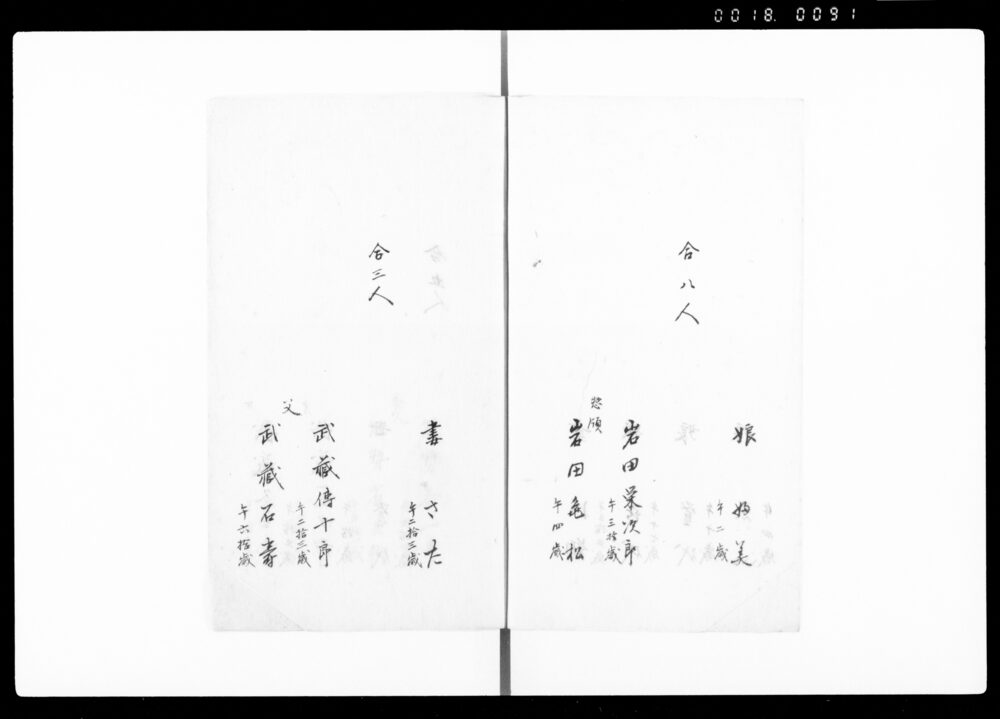 0018. 0091
娘 女美
午二歳
合八人
岩田栄次郎
午三拾歳
惣領
岩田亀松
午四歳
妻 さた
午二拾三歳
合三人
武蔵傳十郎
午二拾三歳
父
武蔵石壽
午六拾歳